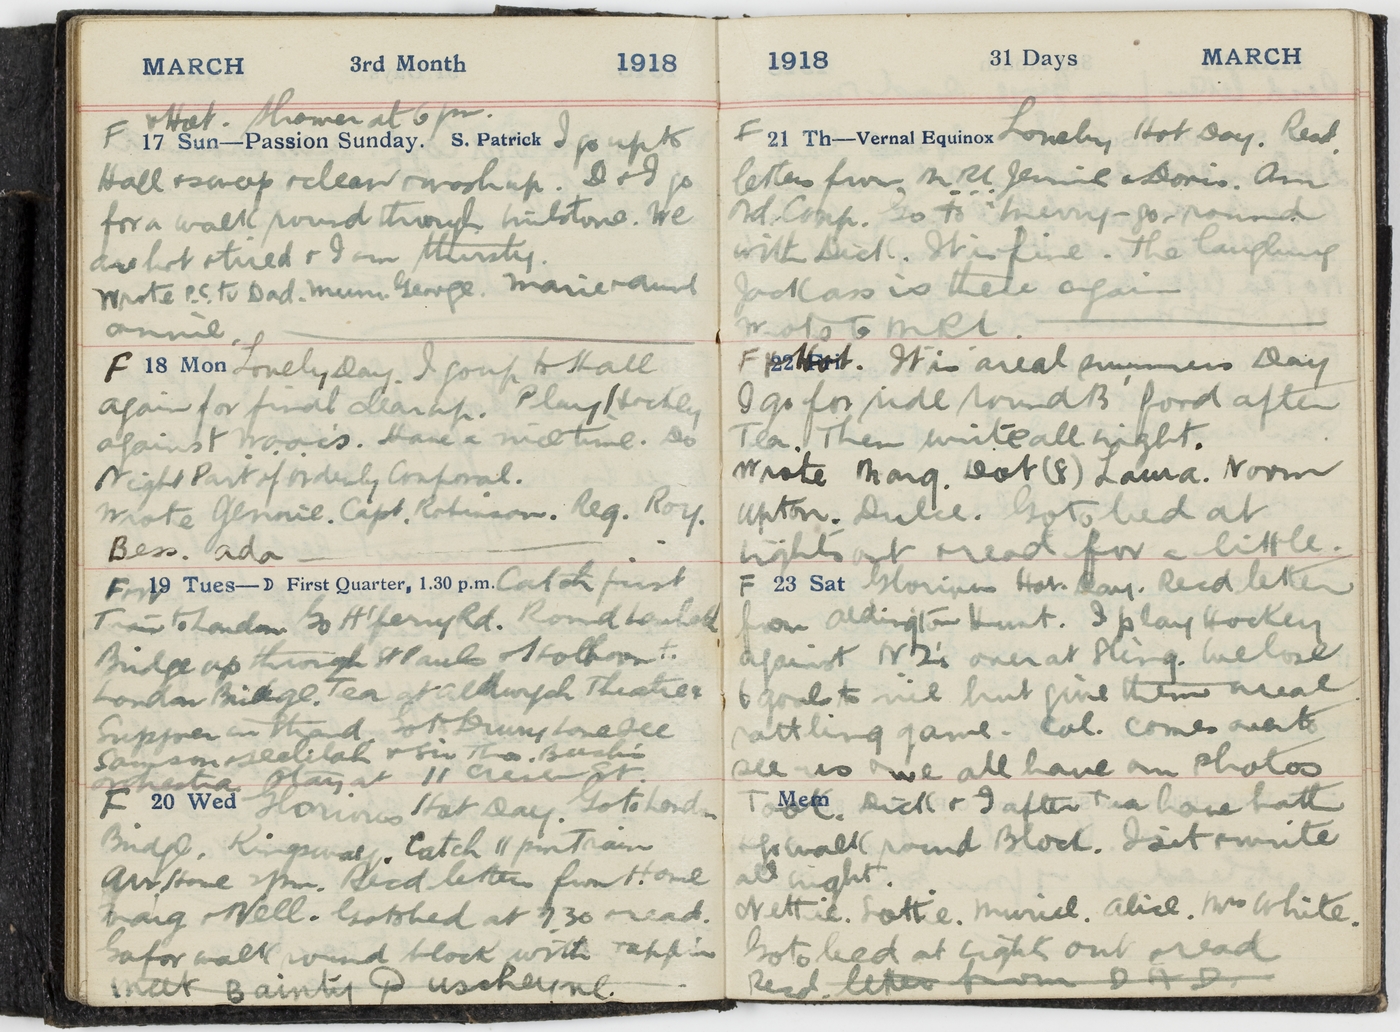 MARCH 3rd Month 1918
F & Hot. Shower at 6 pm.
17 Sun—Passion Sunday. S. Patrick I go up to
Hall & sweep & clean & wash up. D & I go
for a walk round through Milstone. We
are hot & tired & I am thirsty.
Wrote P.C. to Dad. Mum. George. Marie & Aunt
Annie.
F 18 Mon Lovely Day. I go up to Hall
again for final clear up. Play Hockey
against W.a.a.c's. Have a nice time. Do
Night Part of orderly Corporal.
Wrote Gennie. Capt. Robinson. Reg. Roy.
Bess. Ada
F 19 Tues—D First Quarter, 1.30 p.m. Catch first
Train to London Go H'ferry Rd. Round Lambeth
Bridge up through St Pauls & Holborn to
London Bridge. Tea at Aldwych Theatre &
Supper in Strand. Go to Drury Lane See
Samson & Delilah & Sir Tho. Beecham's
orchestra Stay at 11 St.
F 20 Wed Glorious Hot Day. Go to London
Bridge. Kingsway. Catch 11 pm Train
Arr. Home 2pm. Recd letters from Home
Marg & Nell. Go to bed at 7.30 & read.
Go for walk round block with
meet Bainty
1918 31 Days MARCH
F 21 Th—Vernal Equinox Lovely Hot Day. Recd.
letters from M.R.L. Jennie & Doris. Am
Ord. Corp. Go to "merry-go-round
with Dick. It is fine. The laughing
Jackass is there again
Wrote to M.R.L.
F 22 Fri Hot. It is a real summers Day
I go for ride round B'ford after
Tea. Then write all night.
Wrote Marg. Dot (8) Laura. Norm
Upton. Dulce. Go to bed at
lights out & read for a little.
F 23 Sat Glorious Hot Day. Recd letter
from Aldington Hunt. I play Hockey
against N Z's over at Sling. We lose
6 goals to nil but give them a real
rattling game. Col. comes over to
see us & we all have our Photos
Mem
Took. Dick & I after Tea have bath
& go walk round Block. I sit & write
all night.
Nettie. Lottie. Muriel. Alice. Mrs White.
Go to bed at Light out & read
Recd. letter from D A D.